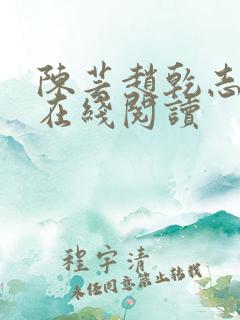 陳芸趙乾志
在綫閱讀
程宇清
未经同意禁止转载